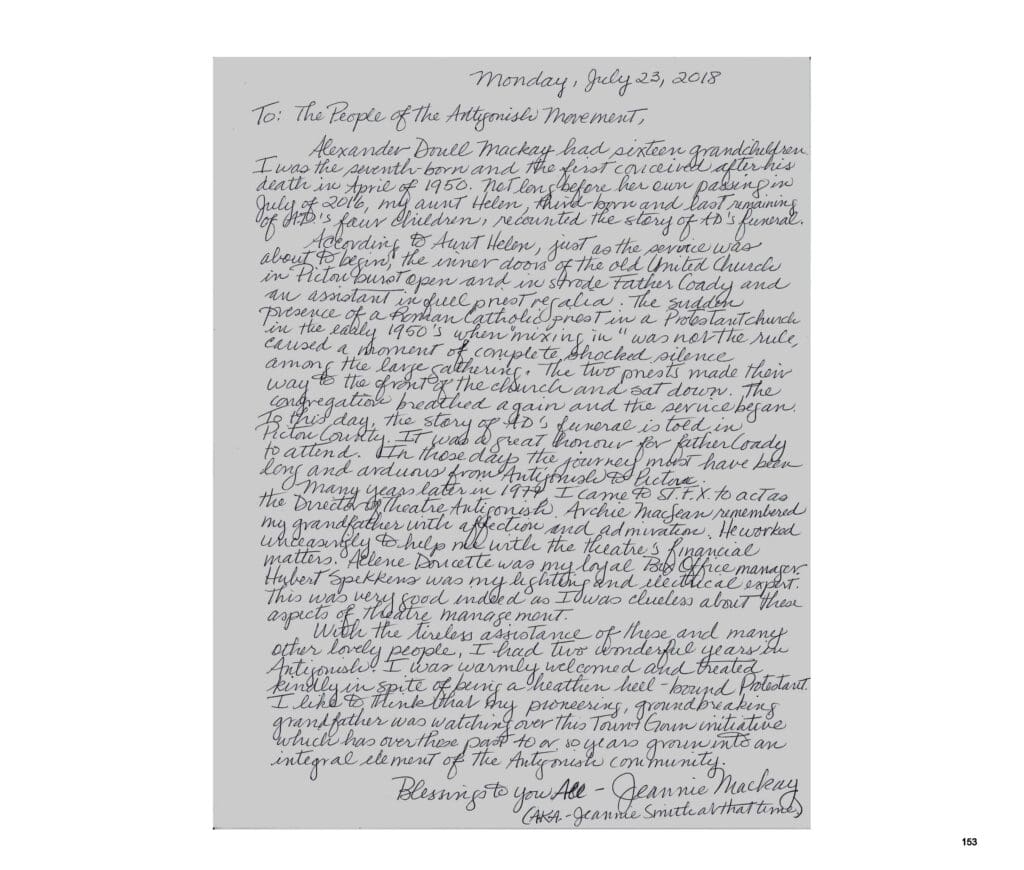 Monday, July 23, 2018
To: The People of the Antigonish Movement,
Alexander Doull Mackay had sixteen grandchildren.
I was the seventh-born and the first conceived after his
death in April of 1950. Not long before her own passing in
July of 2016, my aunt Helen, third born and last remaining
of AD's four children, recounted the story of AD's funeral.
According to Aunt Helen, just as the service was
about to begin, the inner doors of the old United Church
in Pictou burst open and in strode Father Coady and
an assistant in full priest regalia. The sudden
presence of a Roman Catholic priest in a Protestant church
in the early 1950's when "mixing in" was not the rule,
caused a moment of complete, shocked silence
among the large gathering. The two priests made their
way to the front of the church and sat down. The
congregation breathed again and the service began.
To this day, the story of AD's funeral is told in
Pictou County. It was a great honour for father Coady
to attend. In those days the journey must have been
long and arduous from Antigonish to Pictou.
Many years later in 1974, I came to ST.F.X. to act as
the Director of Theatre Antigonish. Archie MacLean remembered
my grandfather with affection and admiration. He worked
unceasingly to help me with the theatre's financial
matters. Allene Doucette was my loyal Box Office manager.
Hubert Spekkens was my lighting and electrical expert.
This was very good indeed as I was clueless about these
aspects of theatre management.
With the tireless assistance of these and many
other lovely people, I had two wonderful years in
Antigonish. I was warmly welcomed and treated
kindly in spite of being a heathen hell-bound Protestant.
I like to think that my pioneering, groundbreaking
grandfather was watching over this Town & Gown initiative
which has over these past 40 or so years grown into an
integral element of the Antigonish community.
Blessings to you All - Jeannie Mackay
(AKA - Jeannie Smith at that time)
153